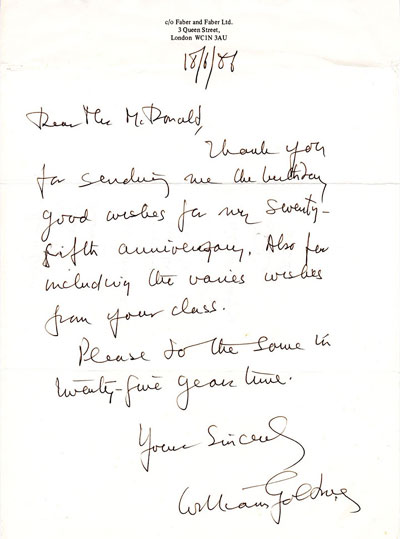 c/o Faber and Faber Ltd.
3 Queen Street,
London WC1N 3AU
18/6/86
Dear Mr McDonald,
Thank you
for sending me the birthday
good wishes for my seventy-
fifth anniversary. Also for
including the varies wishes
from your class.
Please do the same in
twenty-five years time.
Yours Sincerely
William Golding